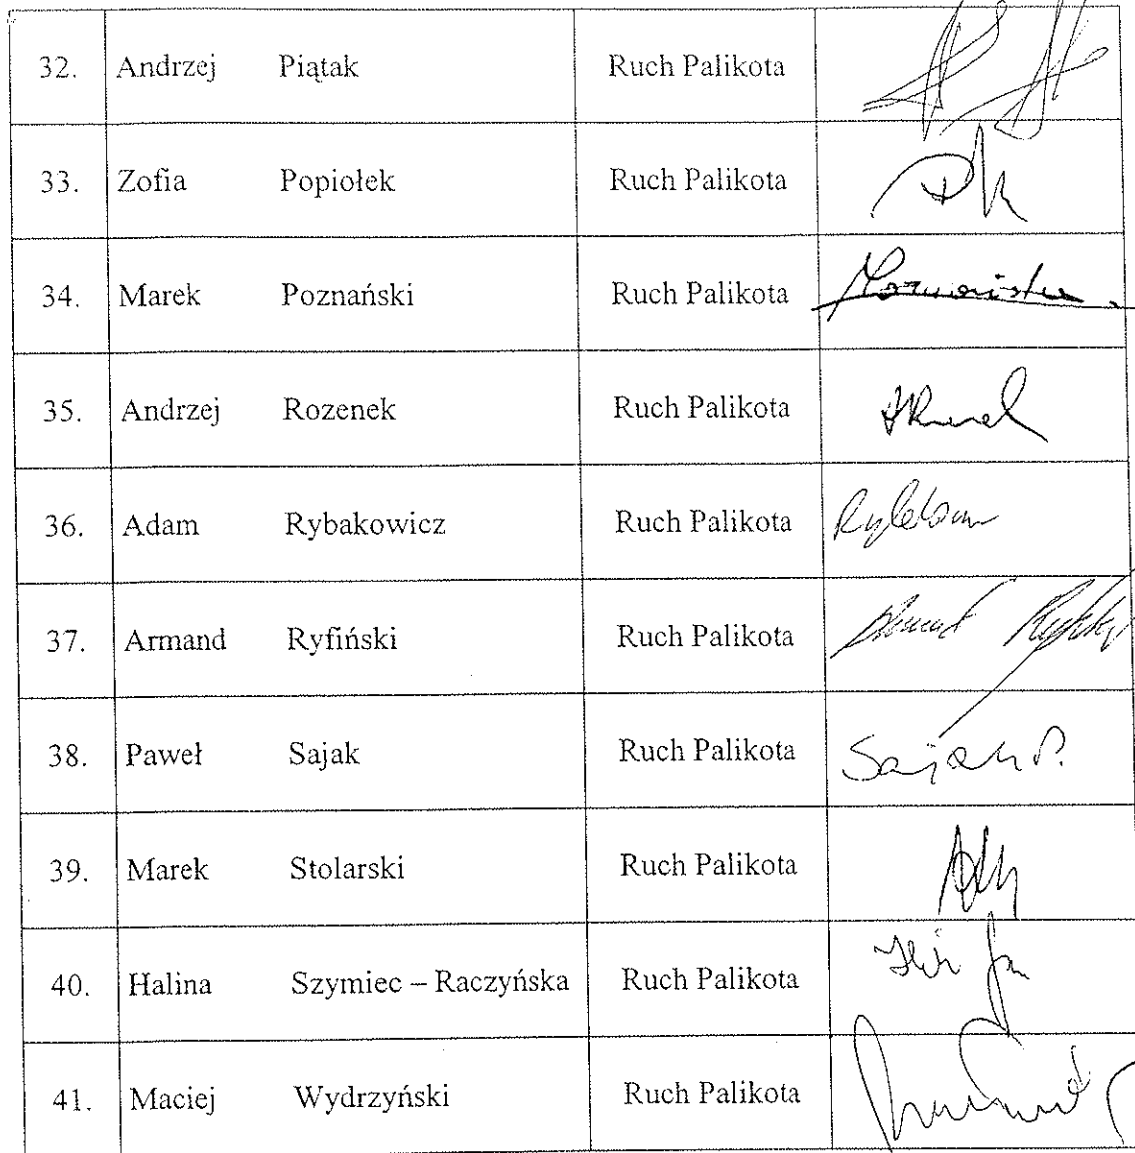 32. Andrzej Piątak Ruch Palikota
33. Zofia Popiołek Ruch Palikota
34. Marek Poznański Ruch Palikota
35. Andrzej Rozenek Ruch Palikota
36. Adam Rybakowicz Ruch Palikota
37. Armand Ryfiński Ruch Palikota
38. Paweł Sajak Ruch Palikota Sajak P.
39. Marek Stolarski Ruch Palikota
40. Halina Szymiec – Raczyńska Ruch Palikota
41. Maciej Wydrzyński Ruch Palikota